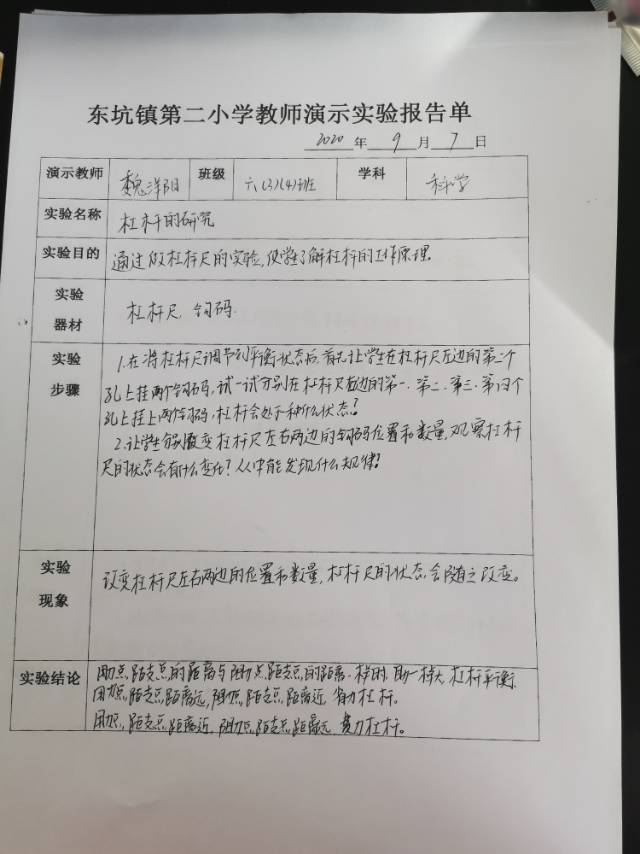 东坑镇第二小学教师演示实验报告单
2020 年 9 月 7 日
演示教师 魏洋阳 班级 六(3)(4)班 学科 科学
实验名称 杠杆的研究
实验目的 通过做杠杆尺的实验,使学生了解杠杆的工作原理。
实验 器材 杠杆尺 钩码
实验 步骤
1.在将杠杆尺调节到平衡状态后,首先让学生在杠杆尺左边的第二个
孔上挂两个钩码,试一试分别在杠杆尺右边的第一、第二、第三、第四个
孔上挂上两个钩码,杠杆会处于种什么状态?
2.让学生改变杠杆尺左右两边的钩码位置和数量,观察杠杆
尺的状态会有什么变化?从中能发现什么规律?
实验 现象 改变杠杆尺左右两边的位置和数量,杠杆尺的状态会随之改变。
实验结论 用力点距支点的距离与阻力点距支点的距离一样时,一样大,杠杆平衡.
用力点距支点距离远,阻力点距支点距离近,省力杠杆。
用力点距支点距离近,阻力点距支点距离远,费力杠杆。